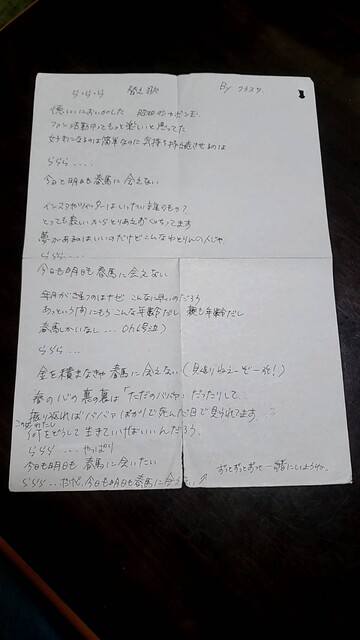 ららら 替え歌 By クラスタ
ファン活動中ってもっと楽しいと思ってた
好きになるのは簡単なのに気持ち持続させるのは
ららら ....
今日も明日も春馬に会えない
インスタやツイッターはいったい誰のもの?
とっても数いからとりあえず
夢があるのはいいのだけどこんなおとりんの人じゃ
ららら....
今日も明日も春馬に会えない
毎月が過ぎるのはなぜ こんなに早いのだろう
あっという間にもうこんな年齢だし 親も年齢だし
春馬しかいないし ... Oh(号泣)
ららら ...
金を積まなきゃ 春馬に会えない
春の心の裏の裏は「ただのババァ」だったりして
振り返ればババァばかりで死んだ目で見られてます
このおわたし
何をどうして生きていけばいいんだろう。
ららら ... やっぱり
今日も明日も 春馬に会いたい
ららら ... 今日も明日も春馬に会う
ずっとずっとずっと一緒にいようね。